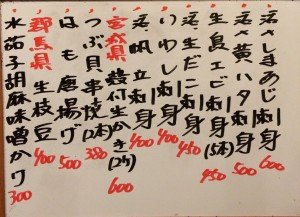 活さしまあじ刺身 600
活き黄ハタ刺身 500
生島エビ刺身(5本) 450
活生だこ刺身 450
いわし刺身 400
活帆立刺身 400
宮城県殻付生かき(2ケ) 600
つぶ貝串焼(2本) 380
はも唐揚げ 500
群馬県生枝豆 400
水茄子胡麻味噌かけ 300